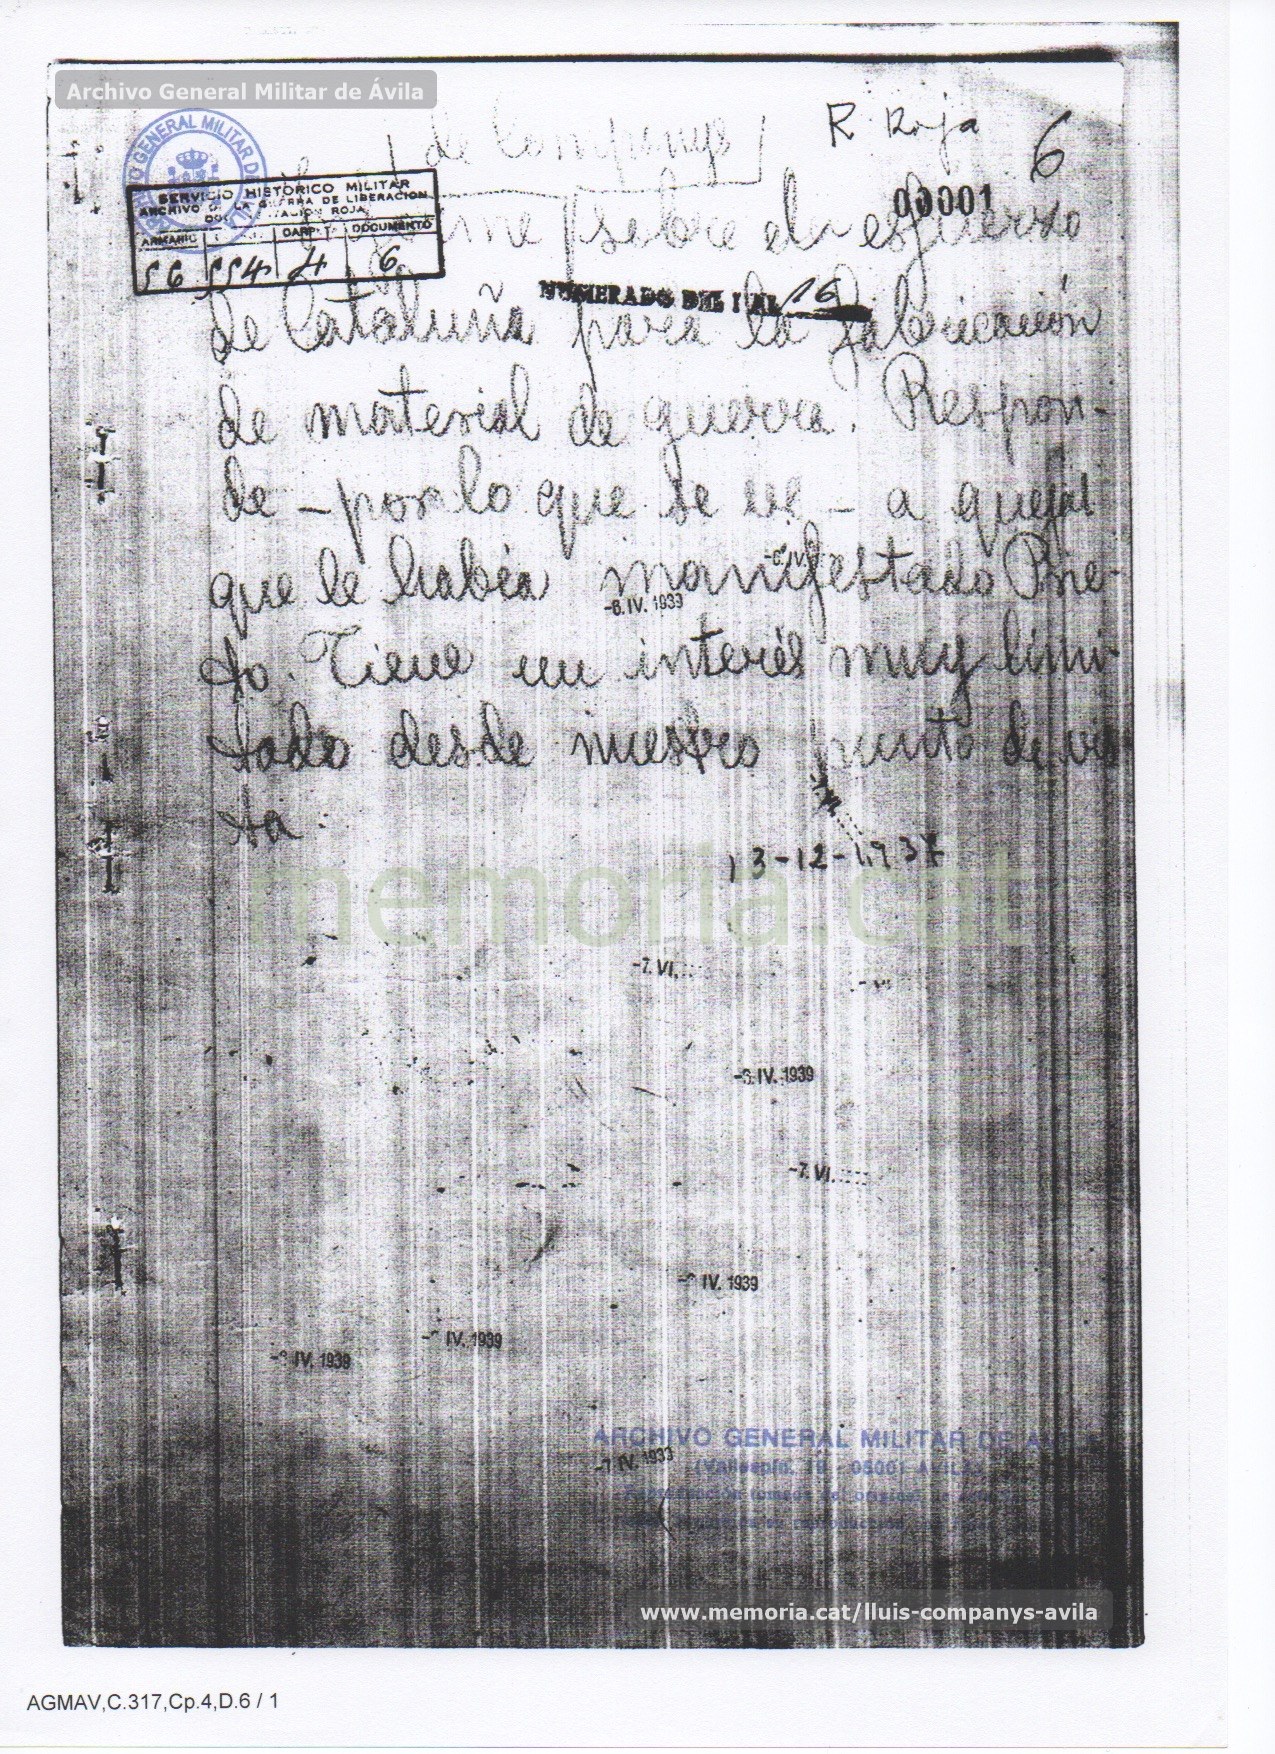 Archivo General Militar de Ávila
de Companys
R Roja
6
00001
GENERAL MILITAR DE
SERVICIO HISTORICO MILITAR
ARCHIVO DE LA GUERRA DE LIBERACION
ROJA
ARMARIO DOCUMENTO
56 554 4 6
sobre el esfuerzo
NUMERADO DEL 1 AL 16
de Cataluña para la fabricación
de material de guerra. Respon-
de - por lo que se ve - a quejas
que le había manifestado Prie-
-6. IV.
-6. IV. 1939
to. Tiene un interés muy limi-
tado desde nuestro punto de vis
ta.
13-12-1937
memoria.cat
-7. VI.
-6. IV. 1939
-7. VI.
IV. 1939
IV. 1939
IV. 1939
ARCHIVO GENERAL MILITAR DE AVILA
IV. 1939
05001 AVILA
www.memoria.cat/lluis-companys-avila
AGMAV,C.317,Cp.4,D.6 / 1